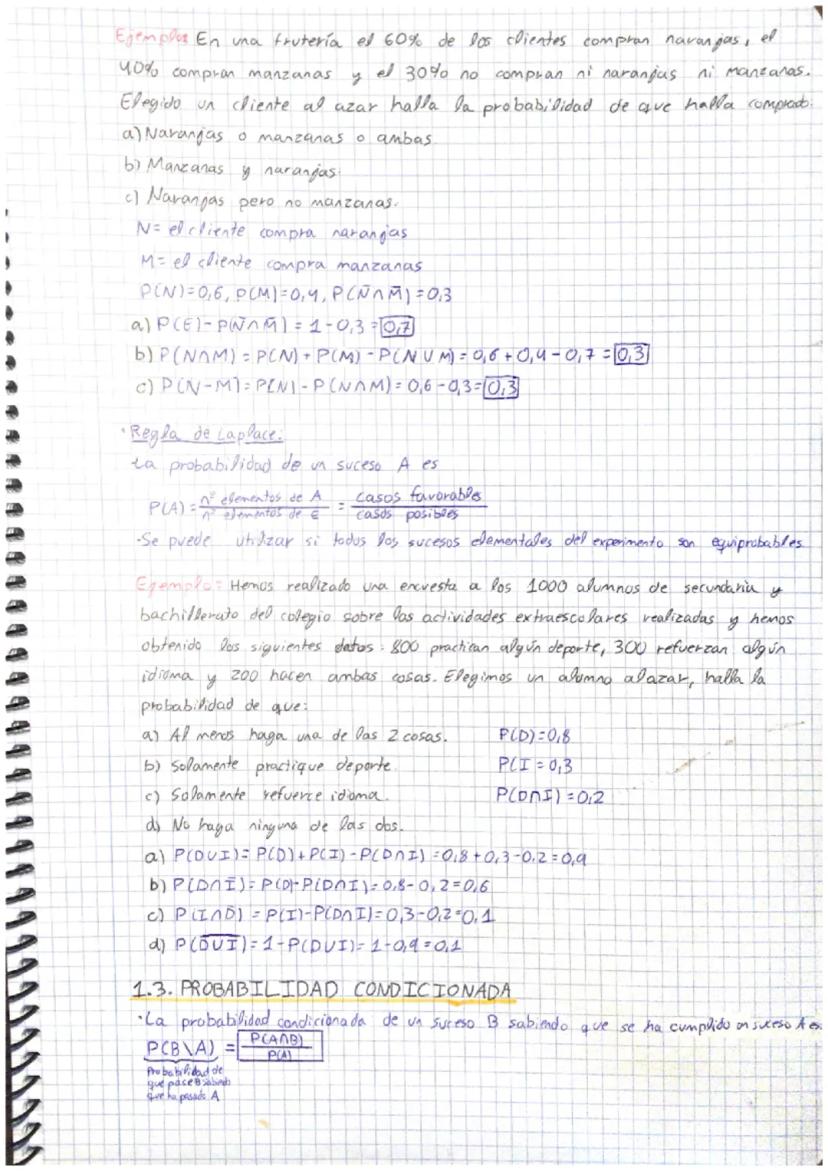 Ejemplos En una frutería el 60% de los clientes compran naranjas, el
40% compran manzanas y el 30% no compran ni naranjas ni manzanas.
Elegido un cliente al azar halla la probabilidad de que halla comprado:
a) Naranjas o manzanas o ambas.
b) Manzanas y naranjas.
c) Naranjas pero no manzanas.
N= el cliente compra naranjas
M= el cliente compra manzanas
P(N)=0,6, P(M)=0,4, P(N̄∩M̄)=0,3
a) P(E)-P(N̄∩M̄) = 1-0,3=0,7
b) P(N∩M) = P(N) + P(M) - P(N∪M) = 0,6+0,4-0,7=0,3
c) P(N-M)= P(N) - P(N∩M)= 0,6-0,3=0,3
· Regla de Laplace:
La probabilidad de un suceso A es
P(A) = nº elementos de A / nº elementos de E = casos favorables / casos posibles
-Se puede utilizar si todos los sucesos elementales del experimento son equiprobables
Ejemplo: Hemos realizado una encuesta a los 1000 alumnos de secundaria y
bachillerato del colegio sobre las actividades extraescolares realizadas y hemos
obtenido los siguientes datos: 800 practican algún deporte, 300 refuerzan algún
idioma y 200 hacen ambas cosas. Elegimos un alumno al azar, halla la
probabilidad de que:
a) Al menos haga una de las 2 cosas. P(D)=0,8
b) Solamente practique deporte. P(I=0,3
c) Solamente refuerce idioma. P(D∩I)=0,2
d) No haga ninguna de las dos.
a) P(D∪I)= P(D)+P(I)-P(D∩I)=0,8+0,3-0,2=0,9
b) P(D∩Ī)= P(D)-P(D∩I)= 0,8-0,2=0,6
c) P(I∩D̄) = P(I)-P(D∩I)=0,3-0,2=0,1
d) P(D̅∪̅I̅)= 1-P(D∪I)= 1-0,9=0,1
1.3. PROBABILIDAD CONDICIONADA
·La probabilidad condicionada de un suceso B sabiendo que se ha cumplido un suceso A es:
P(B\A) = P(A∩B) / P(A)
Probabilidad de
que pase B sabiendo
que ha pasado A